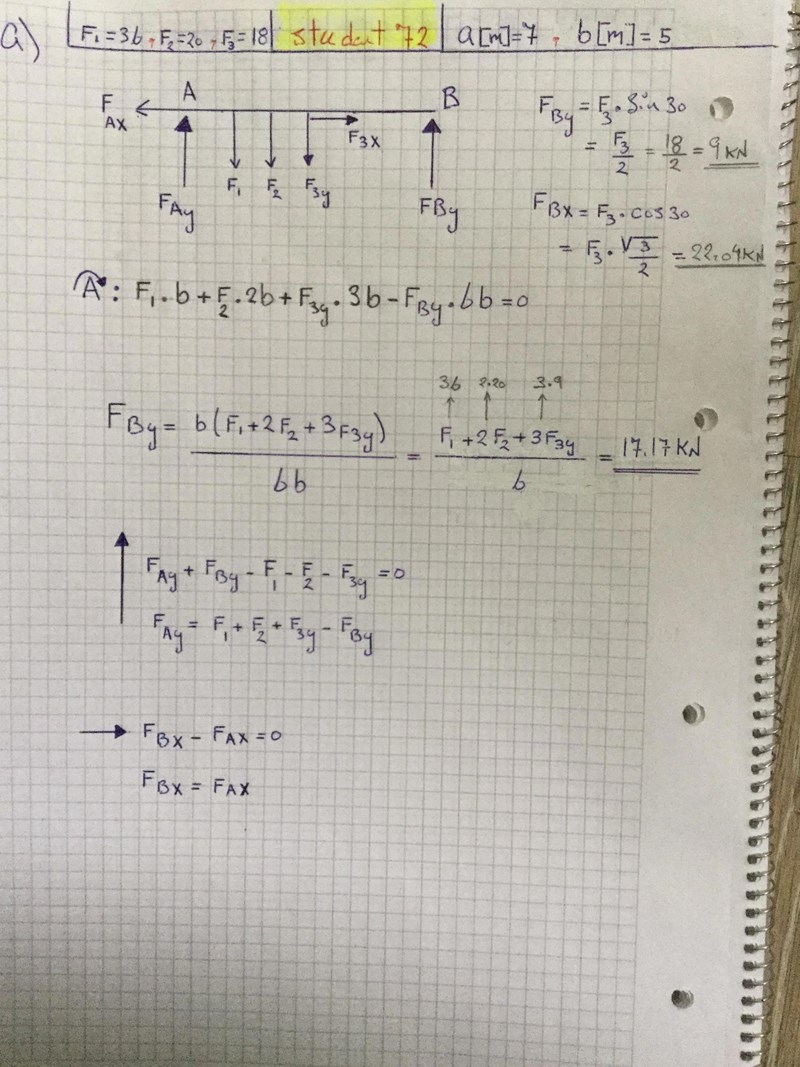 a) F₁=36, F₂=20, F₃=18 student 72 a[m]=7, b[m]=5
A B
F_AX F_3X
F_Ay F₁ F₂ F_3y F_By
F_By = F₃·Sin 30
= F₃/2 = 18/2 = 9 KN
F_BX = F₃·cos30
= F₃·√3/2 = 22.04KN
A: F₁·b + F₂·2b + F_3y·3b - F_By·6b = 0
36 2.20 3.9
F_By = b(F₁+2F₂+3F_3y)/6b = F₁+2F₂+3F_3y/6 = 17.17 KN
F_Ay + F_By - F₁ - F₂ - F_3y = 0
F_Ay = F₁ + F₂ + F_3y - F_By
→ F_BX - F_AX = 0
F_BX = F_AX